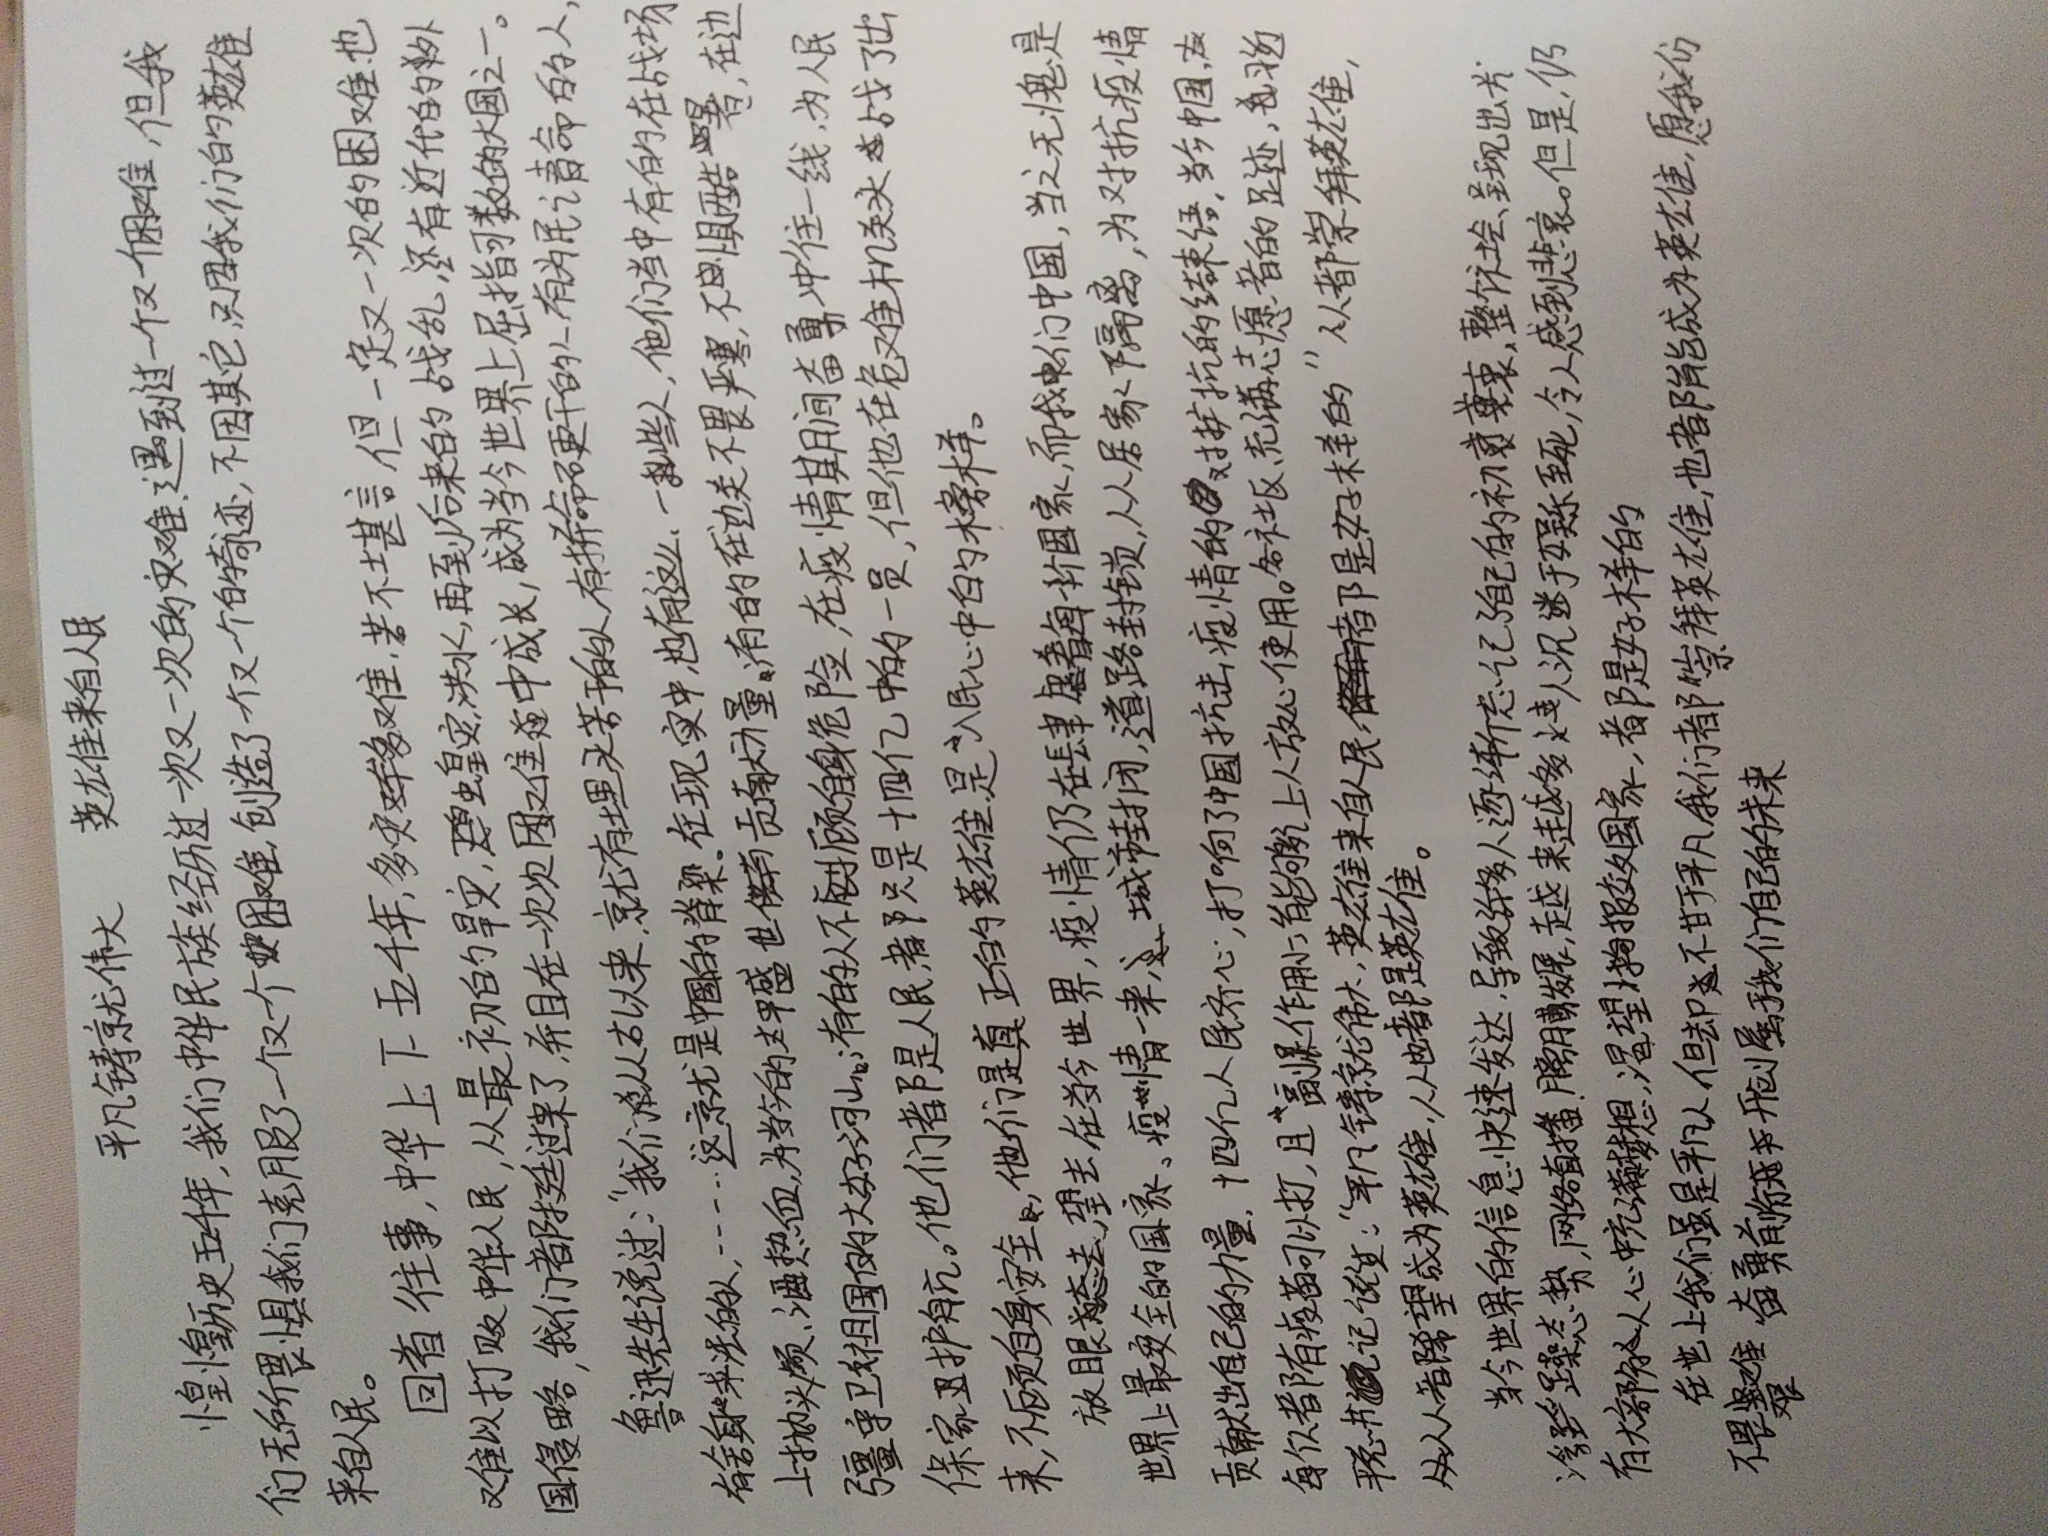 平凡铸就伟大 英雄来自人民
惶惶历史五千年,我们中华民族经历过一次又一次的灾难,遇到过一个又一个困难,但我
们无所畏惧我们克服了一个又一个困难,创造了一个又一个的奇迹,不因其它,只因我们的英雄
来自人民。
回首往事,中华上下五千年,多灾多难,苦不堪言,但一定又一次的困难也
难以打败中华人民,从最初的旱灾,蝗灾,洪水,再到后来的战乱,还有近代的外
国侵略,我们都挺过来了,并且在一次次困难中成长,成为当今世界上屈指可数的大国之一。
鲁迅先生说过:“我们从古以来,就有埋头苦干的人,有拼命硬干的人,有为民请命的人,
有舍身求法的人,……这就是中国的脊梁。在现实中,也有这么一些人,他们当中有的在战场
上抛头颅、洒热血,为当今的盛世贡献力量。有的在边关不畏严寒,不惧酷暑,在边
疆守卫祖国的大好河山。有的人不顾危险,在疫情其间奋勇冲住一线,为人民
保家卫护航。他们都是人民,都只是十四亿中的一员,但他在危难机关头战了出
来,不顾自身安全,他们是真正的英雄是“人民心中的榜样。
放眼望去,在当今世界,疫情仍在肆虐着每一个国家,而我们中国,当之无愧是
世界上最安全的国家。疫情一来,城市封闭,道路封锁,人人居家隔离,为对抗疫情
贡献出自己的力量,十四亿人民齐心,打响了中国抗击疫情的对抗的结束语,当今中国,
每个人都有疫苗可以打,且“副作用小,能够让人放心使用。各社区,充满志愿者的足迹,
书记说过:“平凡铸就伟大,英雄来自人民,都是好样的”人人都崇拜英雄,
人人都希望成为英雄,人人也都是英雄。
当今世界的信息快速发达,导致许多人逐渐忘记了自己的初衷,整个社会呈现出为
浮躁态势,网络直播,发展,越来越多人沉迷于娱乐至死,令人感到悲哀。但是,仍
有大部分人心中充满梦想,渴望报效国家,都是好样的
在世上我们虽是平凡人但却不甘平凡我们都崇拜英雄,也都能成为英雄,愿我们
不畏艰难 奋勇前行 开创属于我们自己的未来